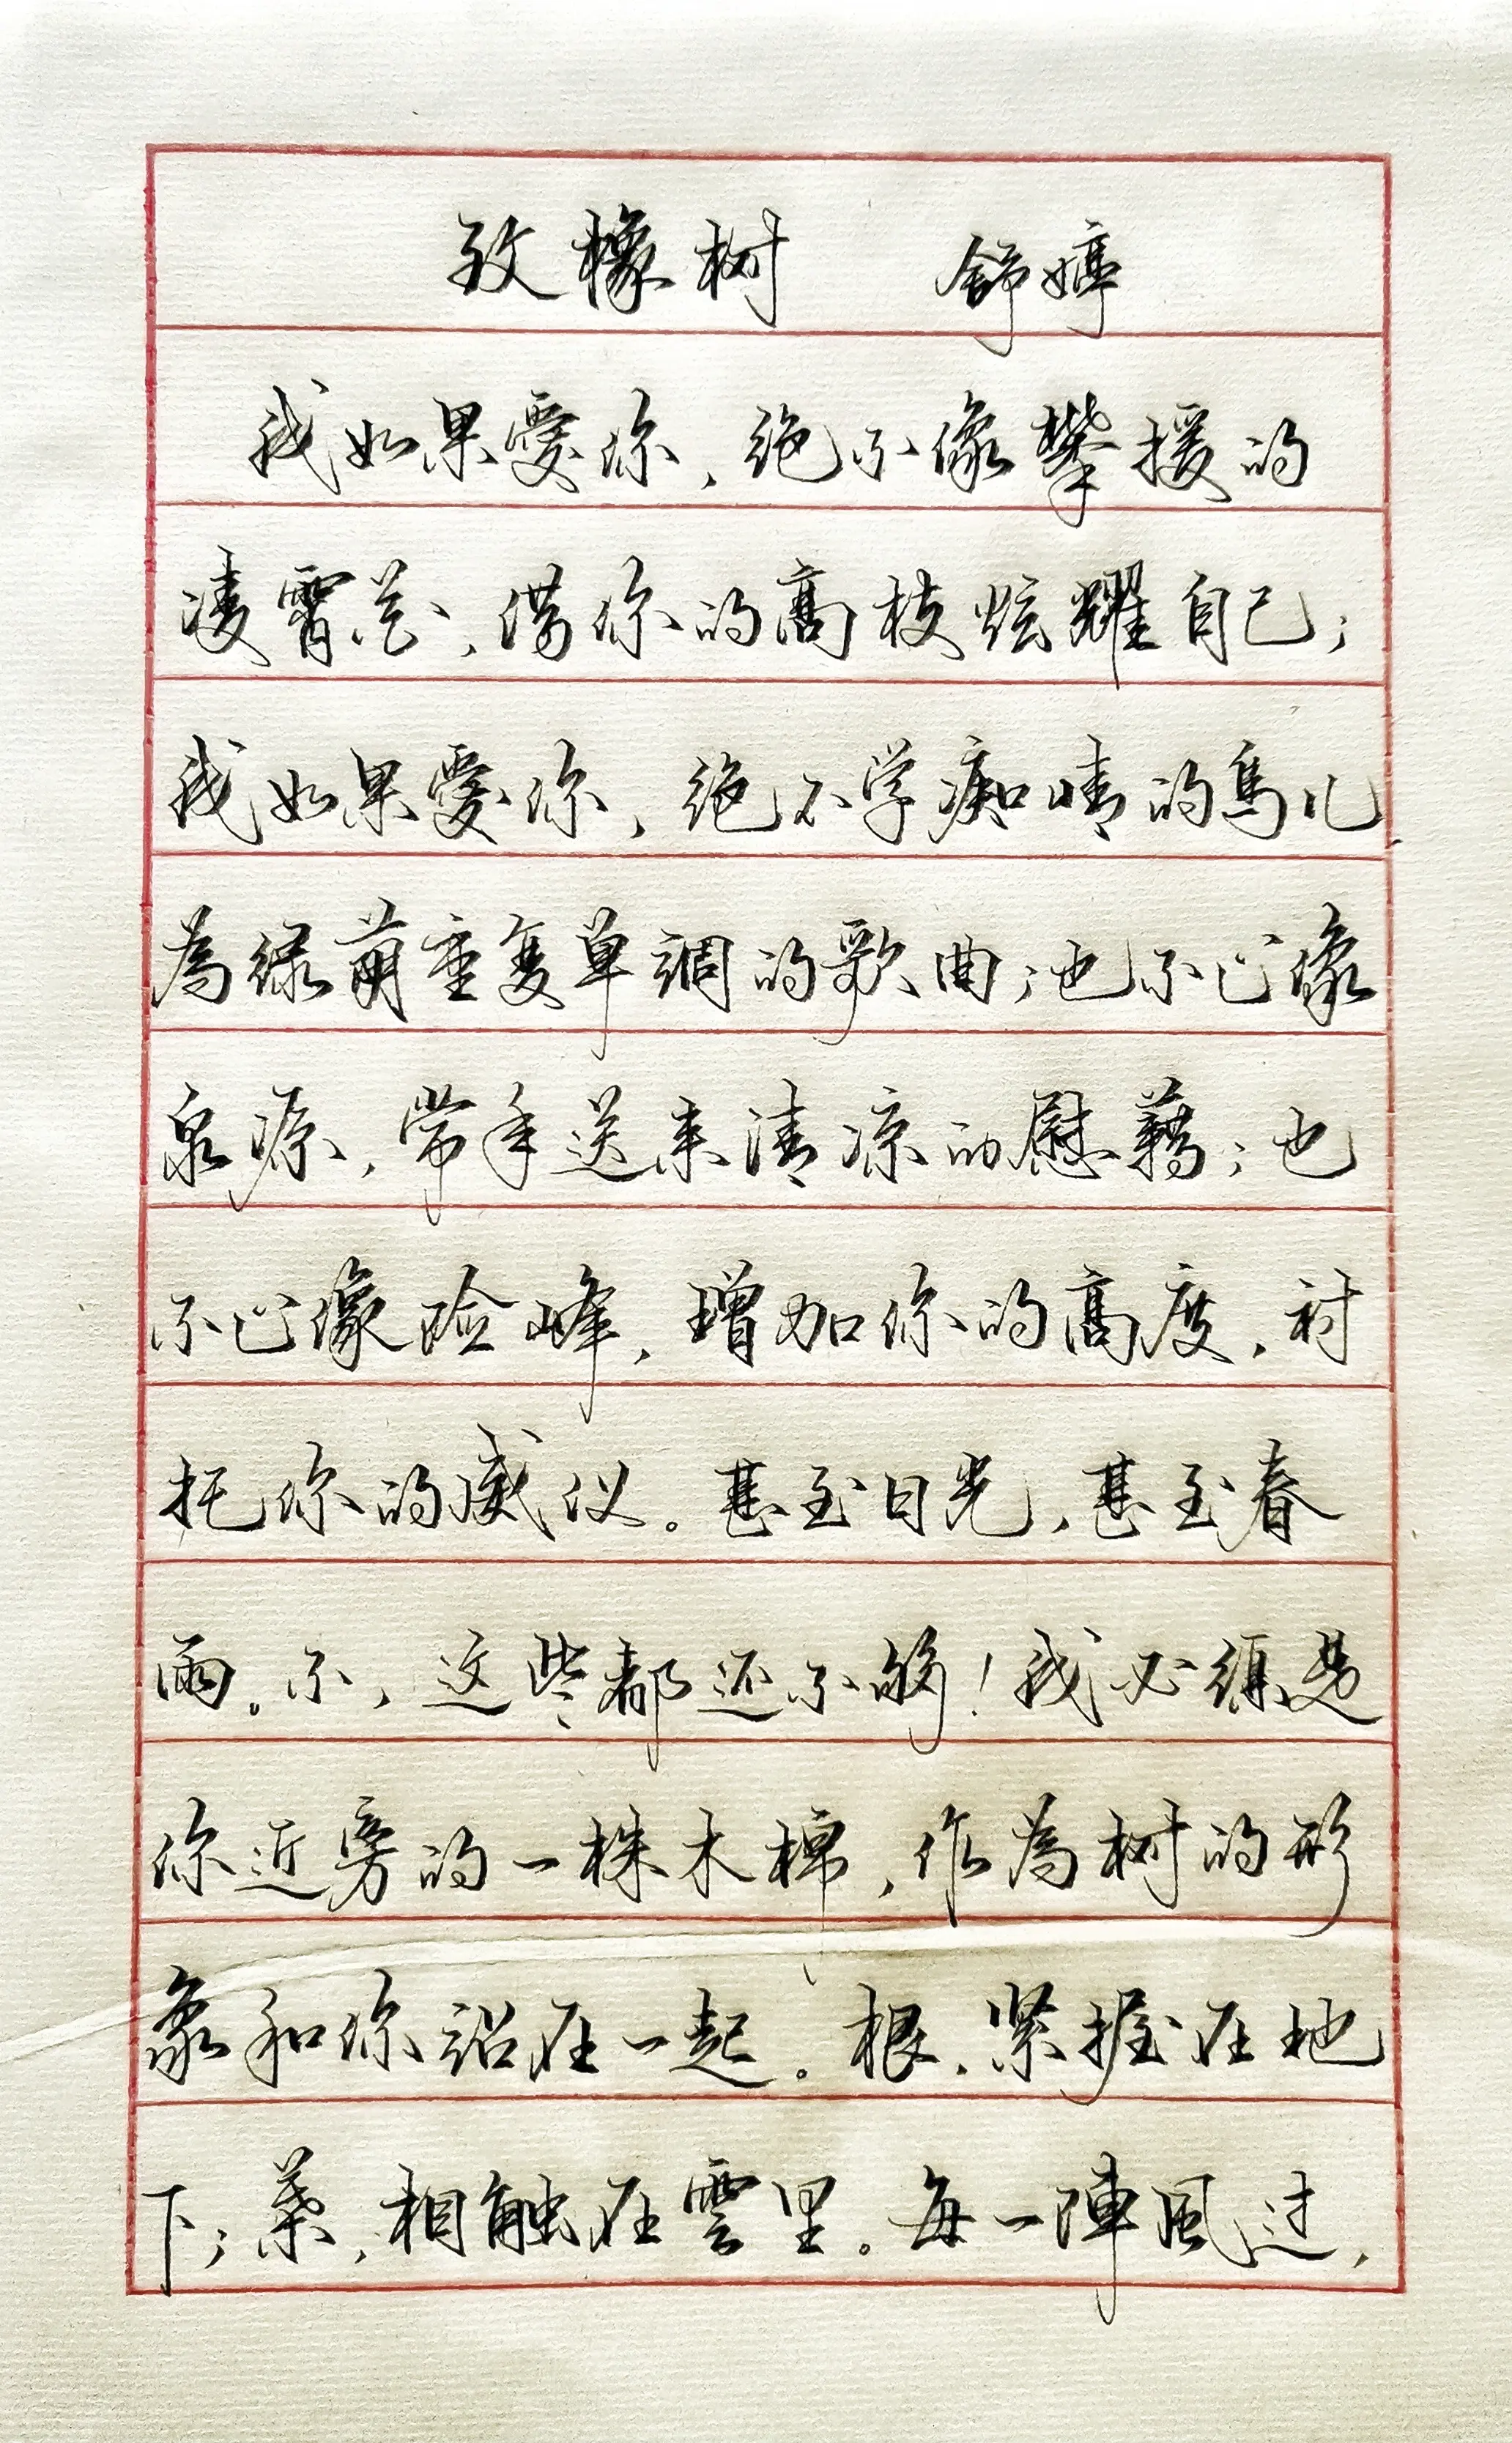 致橡树 舒婷
我如果爱你，绝不像攀援的
凌霄花，借你的高枝炫耀自己；
我如果爱你，绝不学痴情的鸟儿，
為绿荫重复单调的歌曲；也不止像
泉源，常年送来清凉的慰藉；也
不止像险峰，增加你的高度，衬
托你的威仪。甚至日光，甚至春
雨。不，这些都还不够！我必须是
你近旁的一株木棉，作為树的形
象和你站在一起。根，紧握在地
下；葉，相触在雲里。每一陣風过，